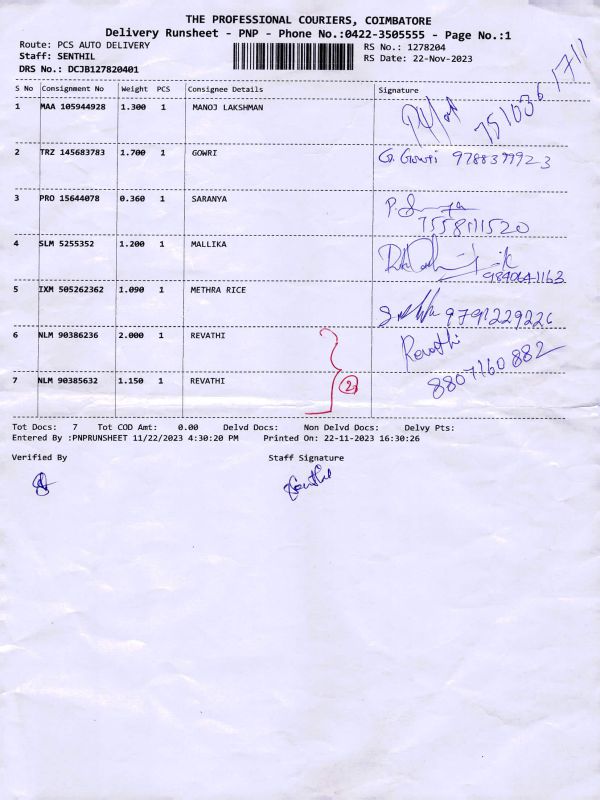 THE PROFESSIONAL COURIERS, COIMBATORE
Delivery Runsheet - PNP - Phone No.:0422-3505555 - Page No.:1
Route: PCS AUTO DELIVERY
RS No.: 1278204
Staff: SENTHIL
RS Date: 22-Nov-2023
DRS No.: DCJB127820401
S No Consignment No Weight PCS Consignee Details Signature
1 MAA 105944928 1.300 1 MANOJ LAKSHMAN
2 TRZ 145683783 1.700 1 GOWRI G. Gowri
3 PRO 15644078 0.360 1 SARANYA
7558111520
4 SLM 5255352 1.200 1 MALLIKA
5 IXM 505262362 1.090 1 METHRA RICE
9791229226
6 NLM 90386236 2.000 1 REVATHI Revathi
7 NLM 90385632 1.150 1 REVATHI 2 8807160882
Tot Docs: 7 Tot COD Amt: 0.00 Delvd Docs: Non Delvd Docs: Delvy Pts:
Entered By :PNPRUNSHEET 11/22/2023 4:30:20 PM Printed On: 22-11-2023 16:30:26
Verified By Staff Signature
Senthil